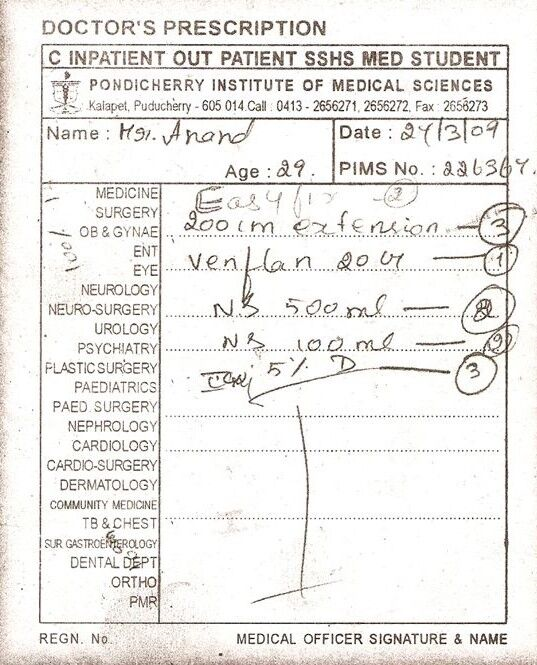 DOCTOR'S PRESCRIPTION
C INPATIENT OUT PATIENT SSHS MED STUDENT
PONDICHERRY INSTITUTE OF MEDICAL SCIENCES
Kalapet, Puducherry - 605 014.Call : 0413 - 2656271, 2656272, Fax : 2656273
Name : Mr. Anand
Date : 24/3/09
Age : 29.
PIMS No. : 226367.
MEDICINE
SURGERY
OB & GYNAE
ENT
EYE
NEUROLOGY
NEURO-SURGERY
UROLOGY
PSYCHIATRY
PLASTIC SURGERY
PAEDIATRICS
PAED. SURGERY
NEPHROLOGY
CARDIOLOGY
CARDIO-SURGERY
DERMATOLOGY
COMMUNITY MEDICINE
TB & CHEST
SUR GASTROENTEROLOGY
DENTAL DEPT
ORTHO
PMR
Easyfix - 2
200 cm extension - 3
Venflan 20 - 1
NS 500 ml -
NS 100 ml - 2
5% D - 3
REGN. No.
MEDICAL OFFICER SIGNATURE & NAME